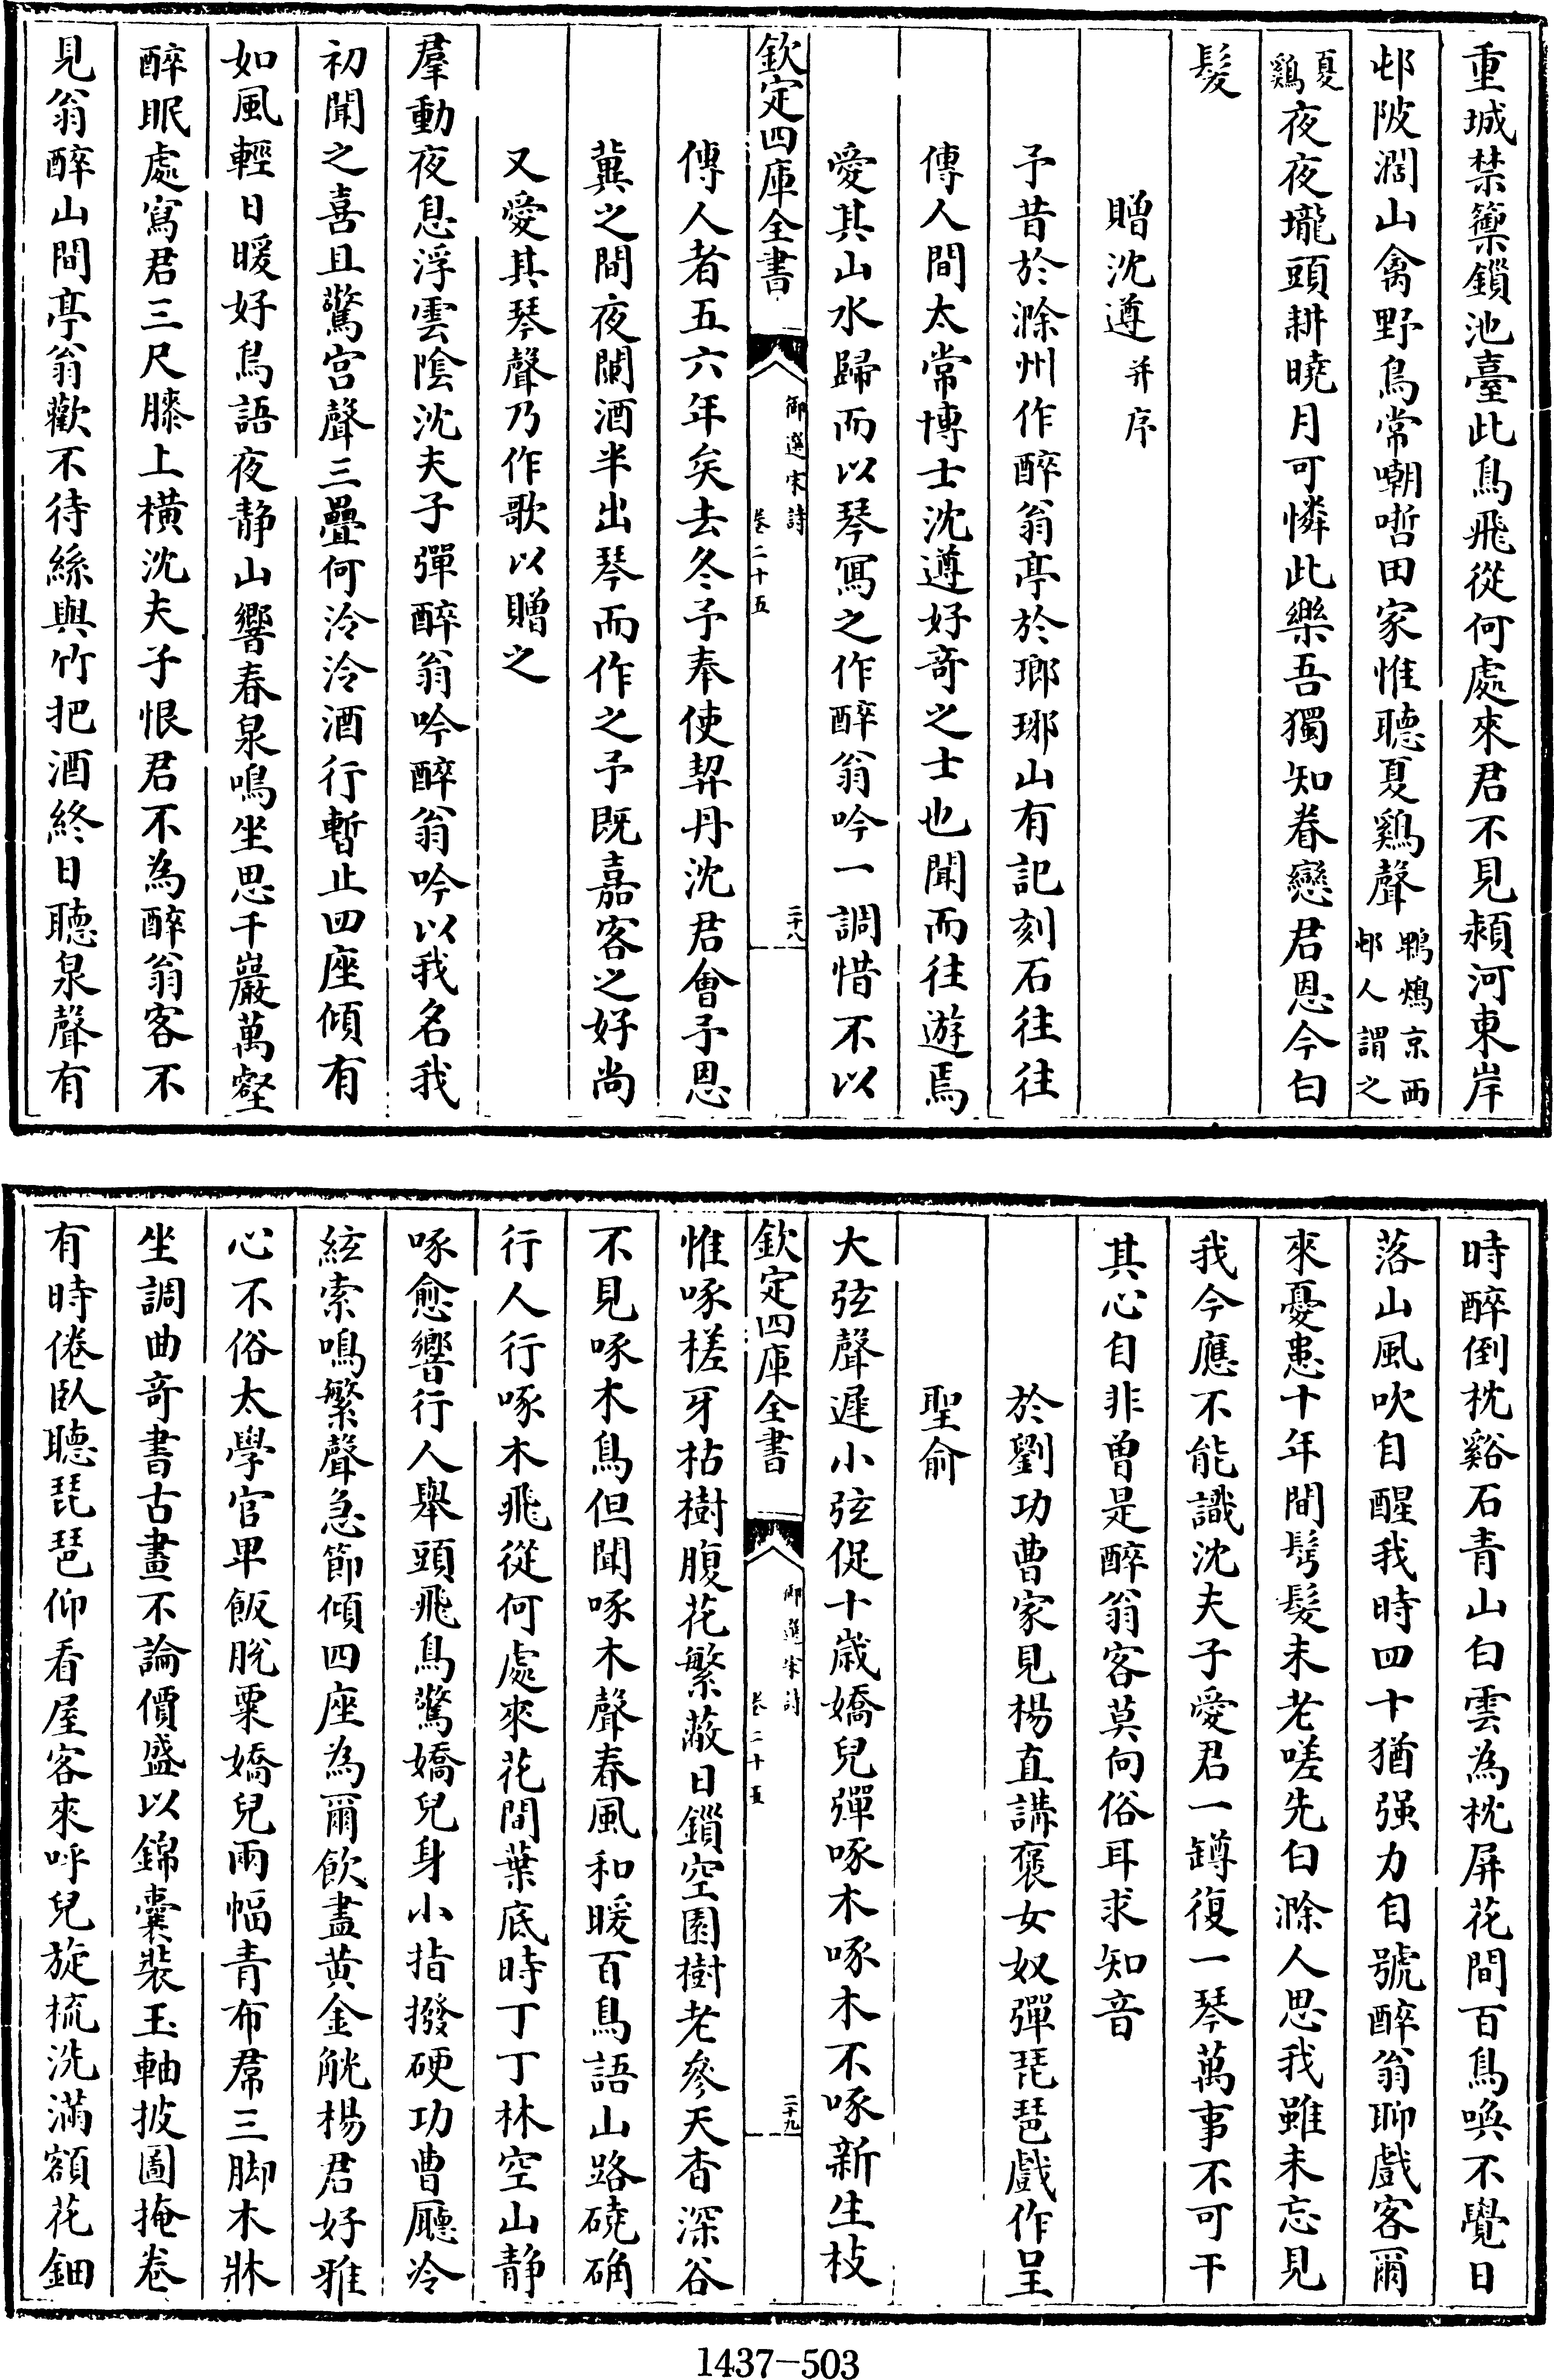 重城禁籞鎖池臺此鳥飛從何處來君不見潁河東岸
邨陂濶山禽野鳥常嘲哳田家惟聽夏鷄聲鵯鵊京西邨人謂之
夏鷄夜夜壠頭耕曉月可憐此樂吾獨知眷戀君恩今白
髮
贈沈遵并序
予昔於滁州作醉翁亭於瑯琊山有記刻石往往
傳人間太常博士沈遵好竒之士也聞而往遊焉
愛其山水歸而以琴寫之作醉翁吟一調惜不以
欽定四庫全書
御選宋詩
卷二十五
二十八
傳人者五六年矣去冬予奉使契丹沈君會予恩
冀之間夜闌酒半出琴而作之予既嘉客之好尚
又愛其琴聲乃作歌以贈之
羣動夜息浮雲陰沈夫子彈醉翁吟醉翁吟以我名我
初聞之喜且驚宫聲三疊何泠泠酒行暫止四座傾有
如風輕日暖好鳥語夜静山響春泉鳴坐思千巖萬壑
醉眠處寫君三尺膝上横沈夫子恨君不為醉翁客不
見翁醉山間亭翁歡不待絲與竹把酒終日聽泉聲有
時醉倒枕谿石青山白雲為枕屏花間百鳥喚不覺日
落山風吹自醒我時四十猶强力自號醉翁聊戲客爾
來憂患十年間鬂髮未老嗟先白滁人思我雖未忘見
我今應不能識沈夫子愛君一罇復一琴萬事不可干
其心自非曽是醉翁客莫向俗耳求知音
於劉功曹家見楊直講褒女奴彈琵琶戲作呈
聖俞
大弦聲遲小弦促十歲嬌兒彈啄木啄木不啄新生枝
欽定四庫全書
御選宋詩
卷二十五
二十九
惟啄槎牙枯樹腹花繁蔽日鎖空園樹老參天杳深谷
不見啄木鳥但聞啄木聲春風和暖百鳥語山路磽确
行人行啄木飛從何處來花間葉底時丁丁林空山静
啄愈響行人舉頭飛鳥驚嬌兒身小指撥硬功曹廳冷
絃索鳴繁聲急節傾四座為爾飲盡黄金觥楊君好雅
心不俗太學官卑飯脱粟嬌兒兩幅青布帬三脚木牀
坐調曲竒書古畫不論價盛以錦囊裝玉軸披圖掩卷
有時倦臥聽琵琶仰看屋客來呼兒旋梳洗滿額花鈿
1437-503